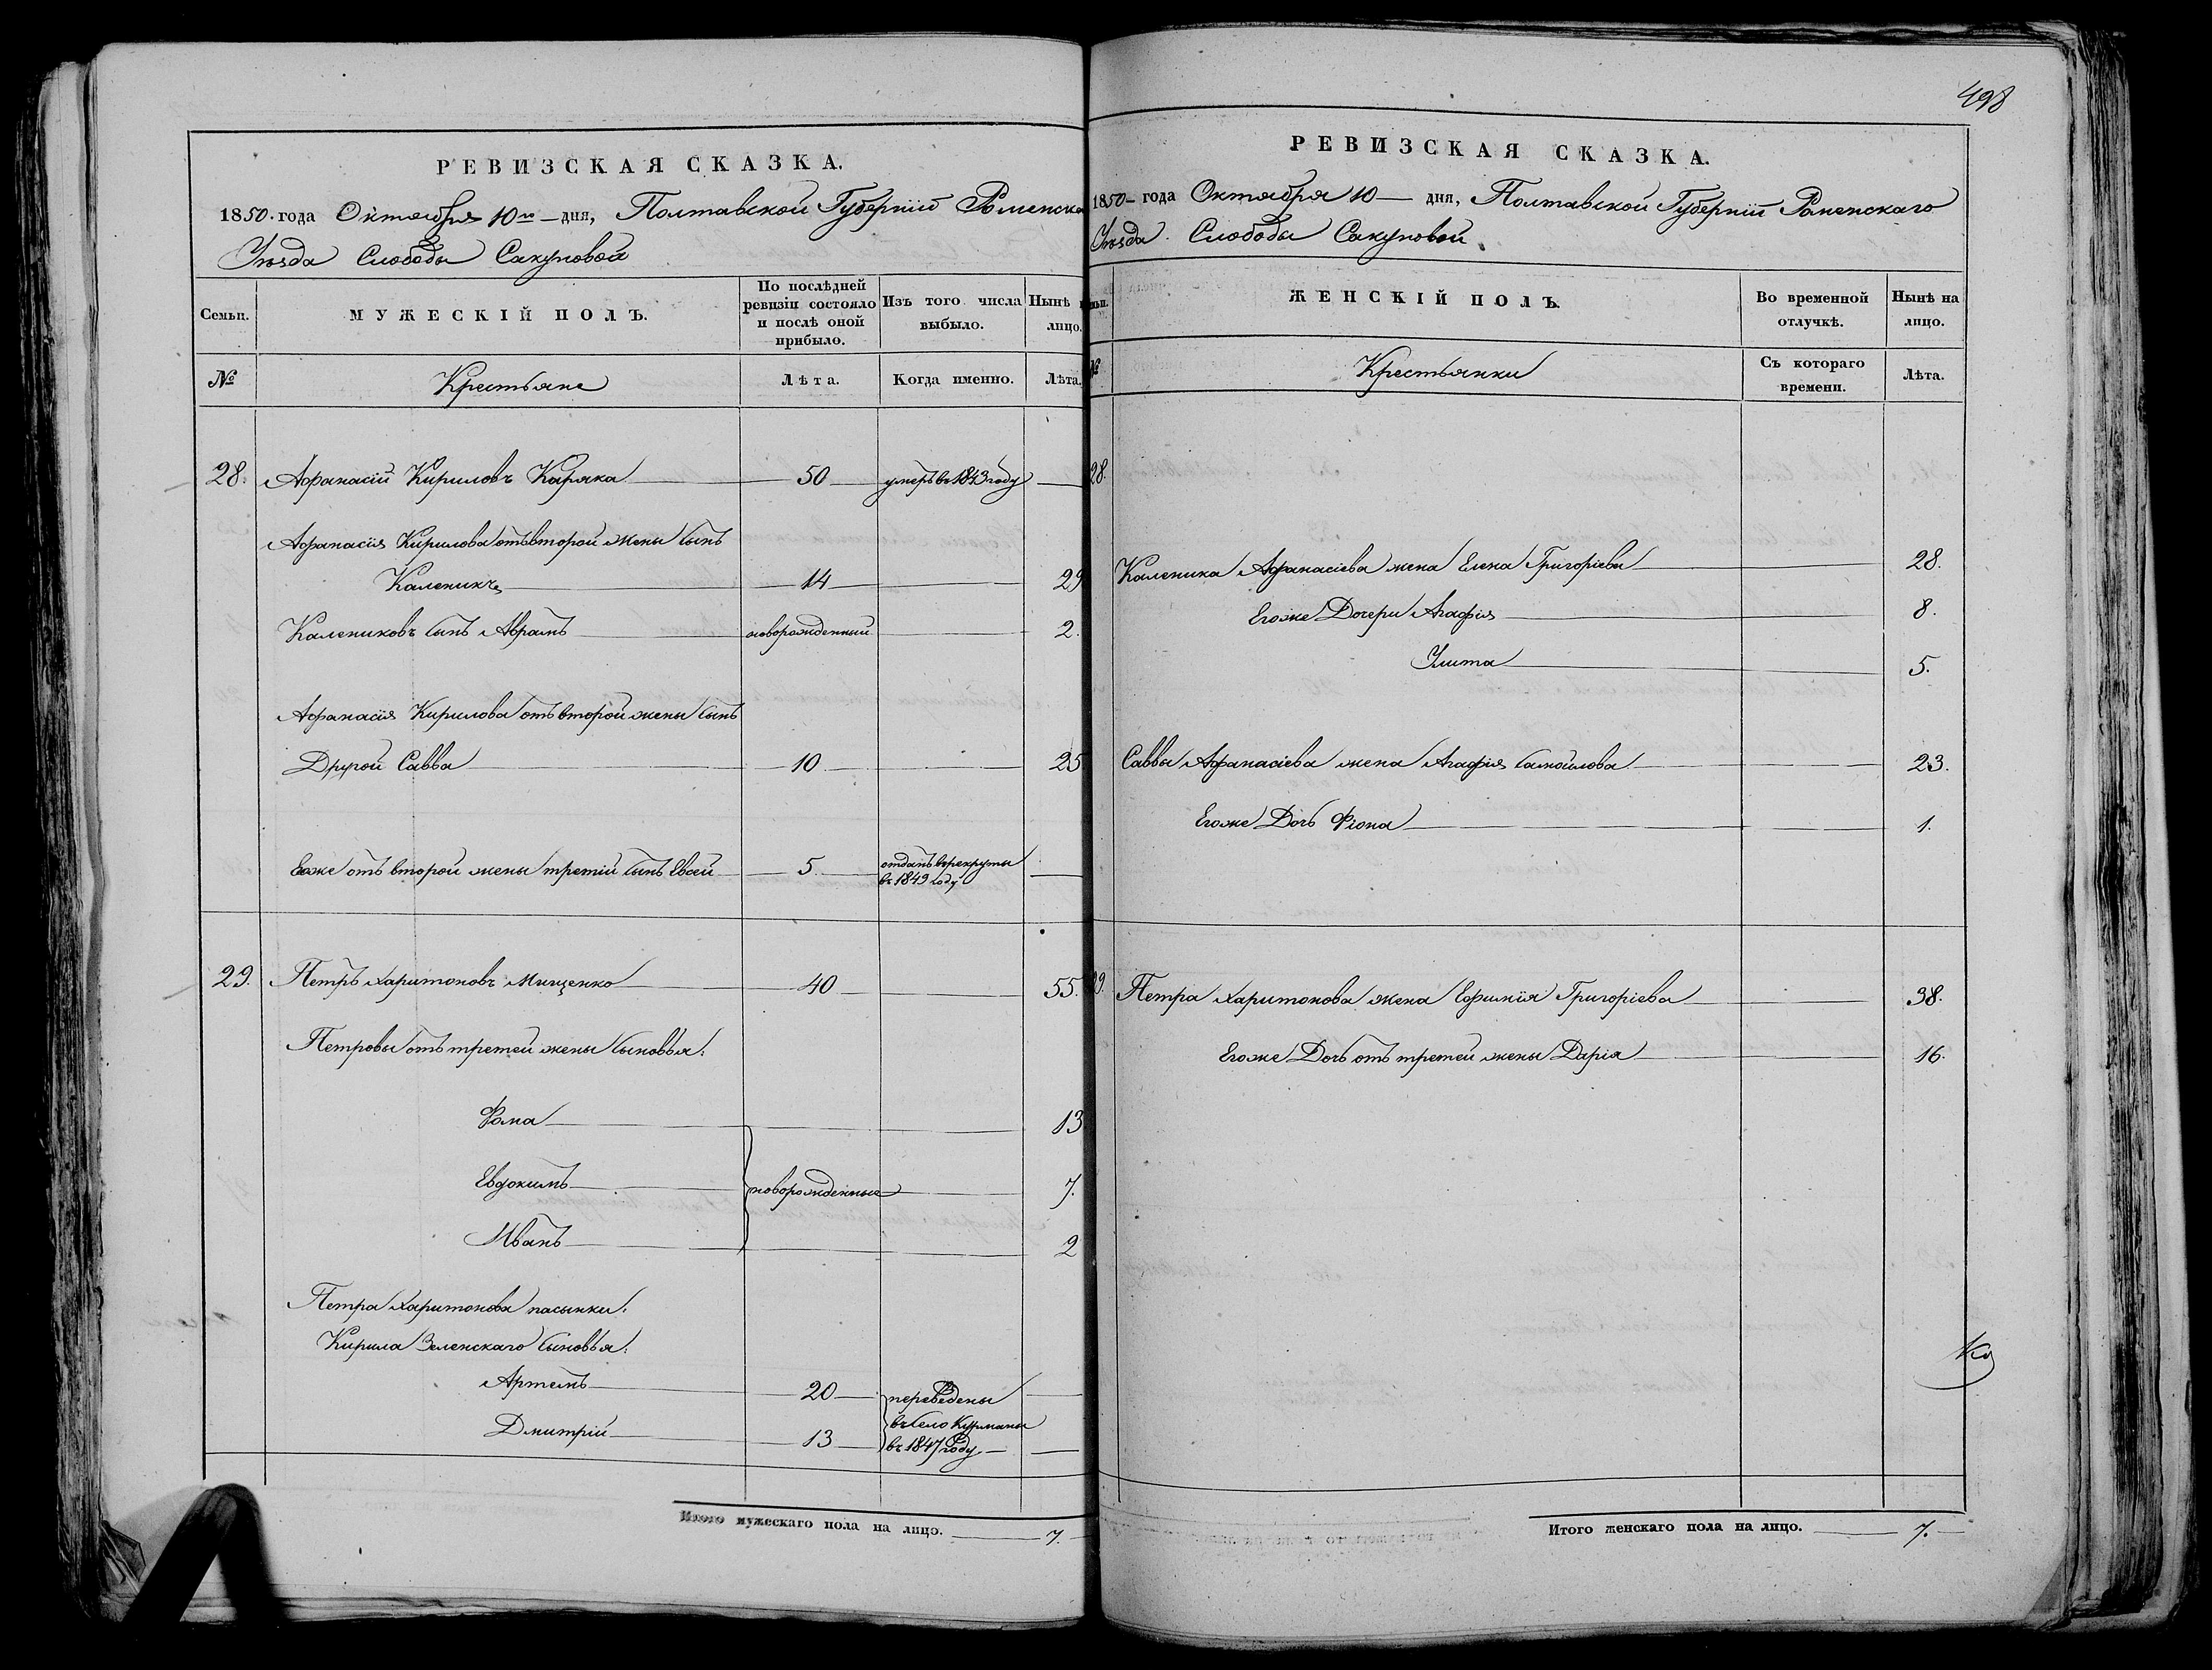 498
РЕВИЗСКАЯ СКАЗКА.
1850. года Октября 10го дня, Полтавской Губерніи Роменска
Уѣзда Слободы Сакуновой
Семьи.
МУЖЕСКІЙ ПОЛЪ.
По послѣдней ревизіи состояло и послѣ оной прибыло.
Изъ того числа выбыло.
Нынѣ
лицо.
№
Крестьяне
Лѣта.
Когда именно.
Лѣта.
28. Афанасій Кириловъ Каряка 50 умеръ въ 1843 году
Афанасія Кирилова отъ второй жены сынъ
Каленикъ 14 29
Калениковъ сынъ Аврамъ новорожденный 2.
Афанасія Кирилова отъ второй жены сынъ
Другой Савва 10 25
Егоже отъ второй жены третій сынъ Евсей 5 отданъ в рекруты
въ 1849 году
29. Петръ Харитоновъ Мищенко 40 55.
Петровы отъ третей жены сыновья:
Фома 13
Евдокимъ новорожденные 7.
Иванъ 2
Петра Харитонова пасынки:
Кирила Зеленскаго сыновья:
Артемъ 20 переведены
въ село
Дмитрій 13 въ 1847 году
Итого мужескаго пола на лицо. 7.
РЕВИЗСКАЯ СКАЗКА.
1850 года Октября 10 дня, Полтавской Губерніи Роменскаго
Уѣзда Слободы Сакуновой.
ЖЕНСКІЙ ПОЛЪ.
Во временной отлучкѣ.
Нынѣ на лицо.
№
Крестьянки
Съ котораго времени.
Лѣта.
28.
Каленика Афанасіева жена Елена Григоріева 28.
Егоже Дочери Агафія 8.
Улита 5.
Саввы Афанасіева жена Агафія Самойлова 23.
Егоже Дочь Фіона 1.
29. Петра Харитонова жена Ефимія Григоріева 38.
Егоже Дочь отъ третей жены Дарія 16.
Итого женскаго пола на лицо. 7.